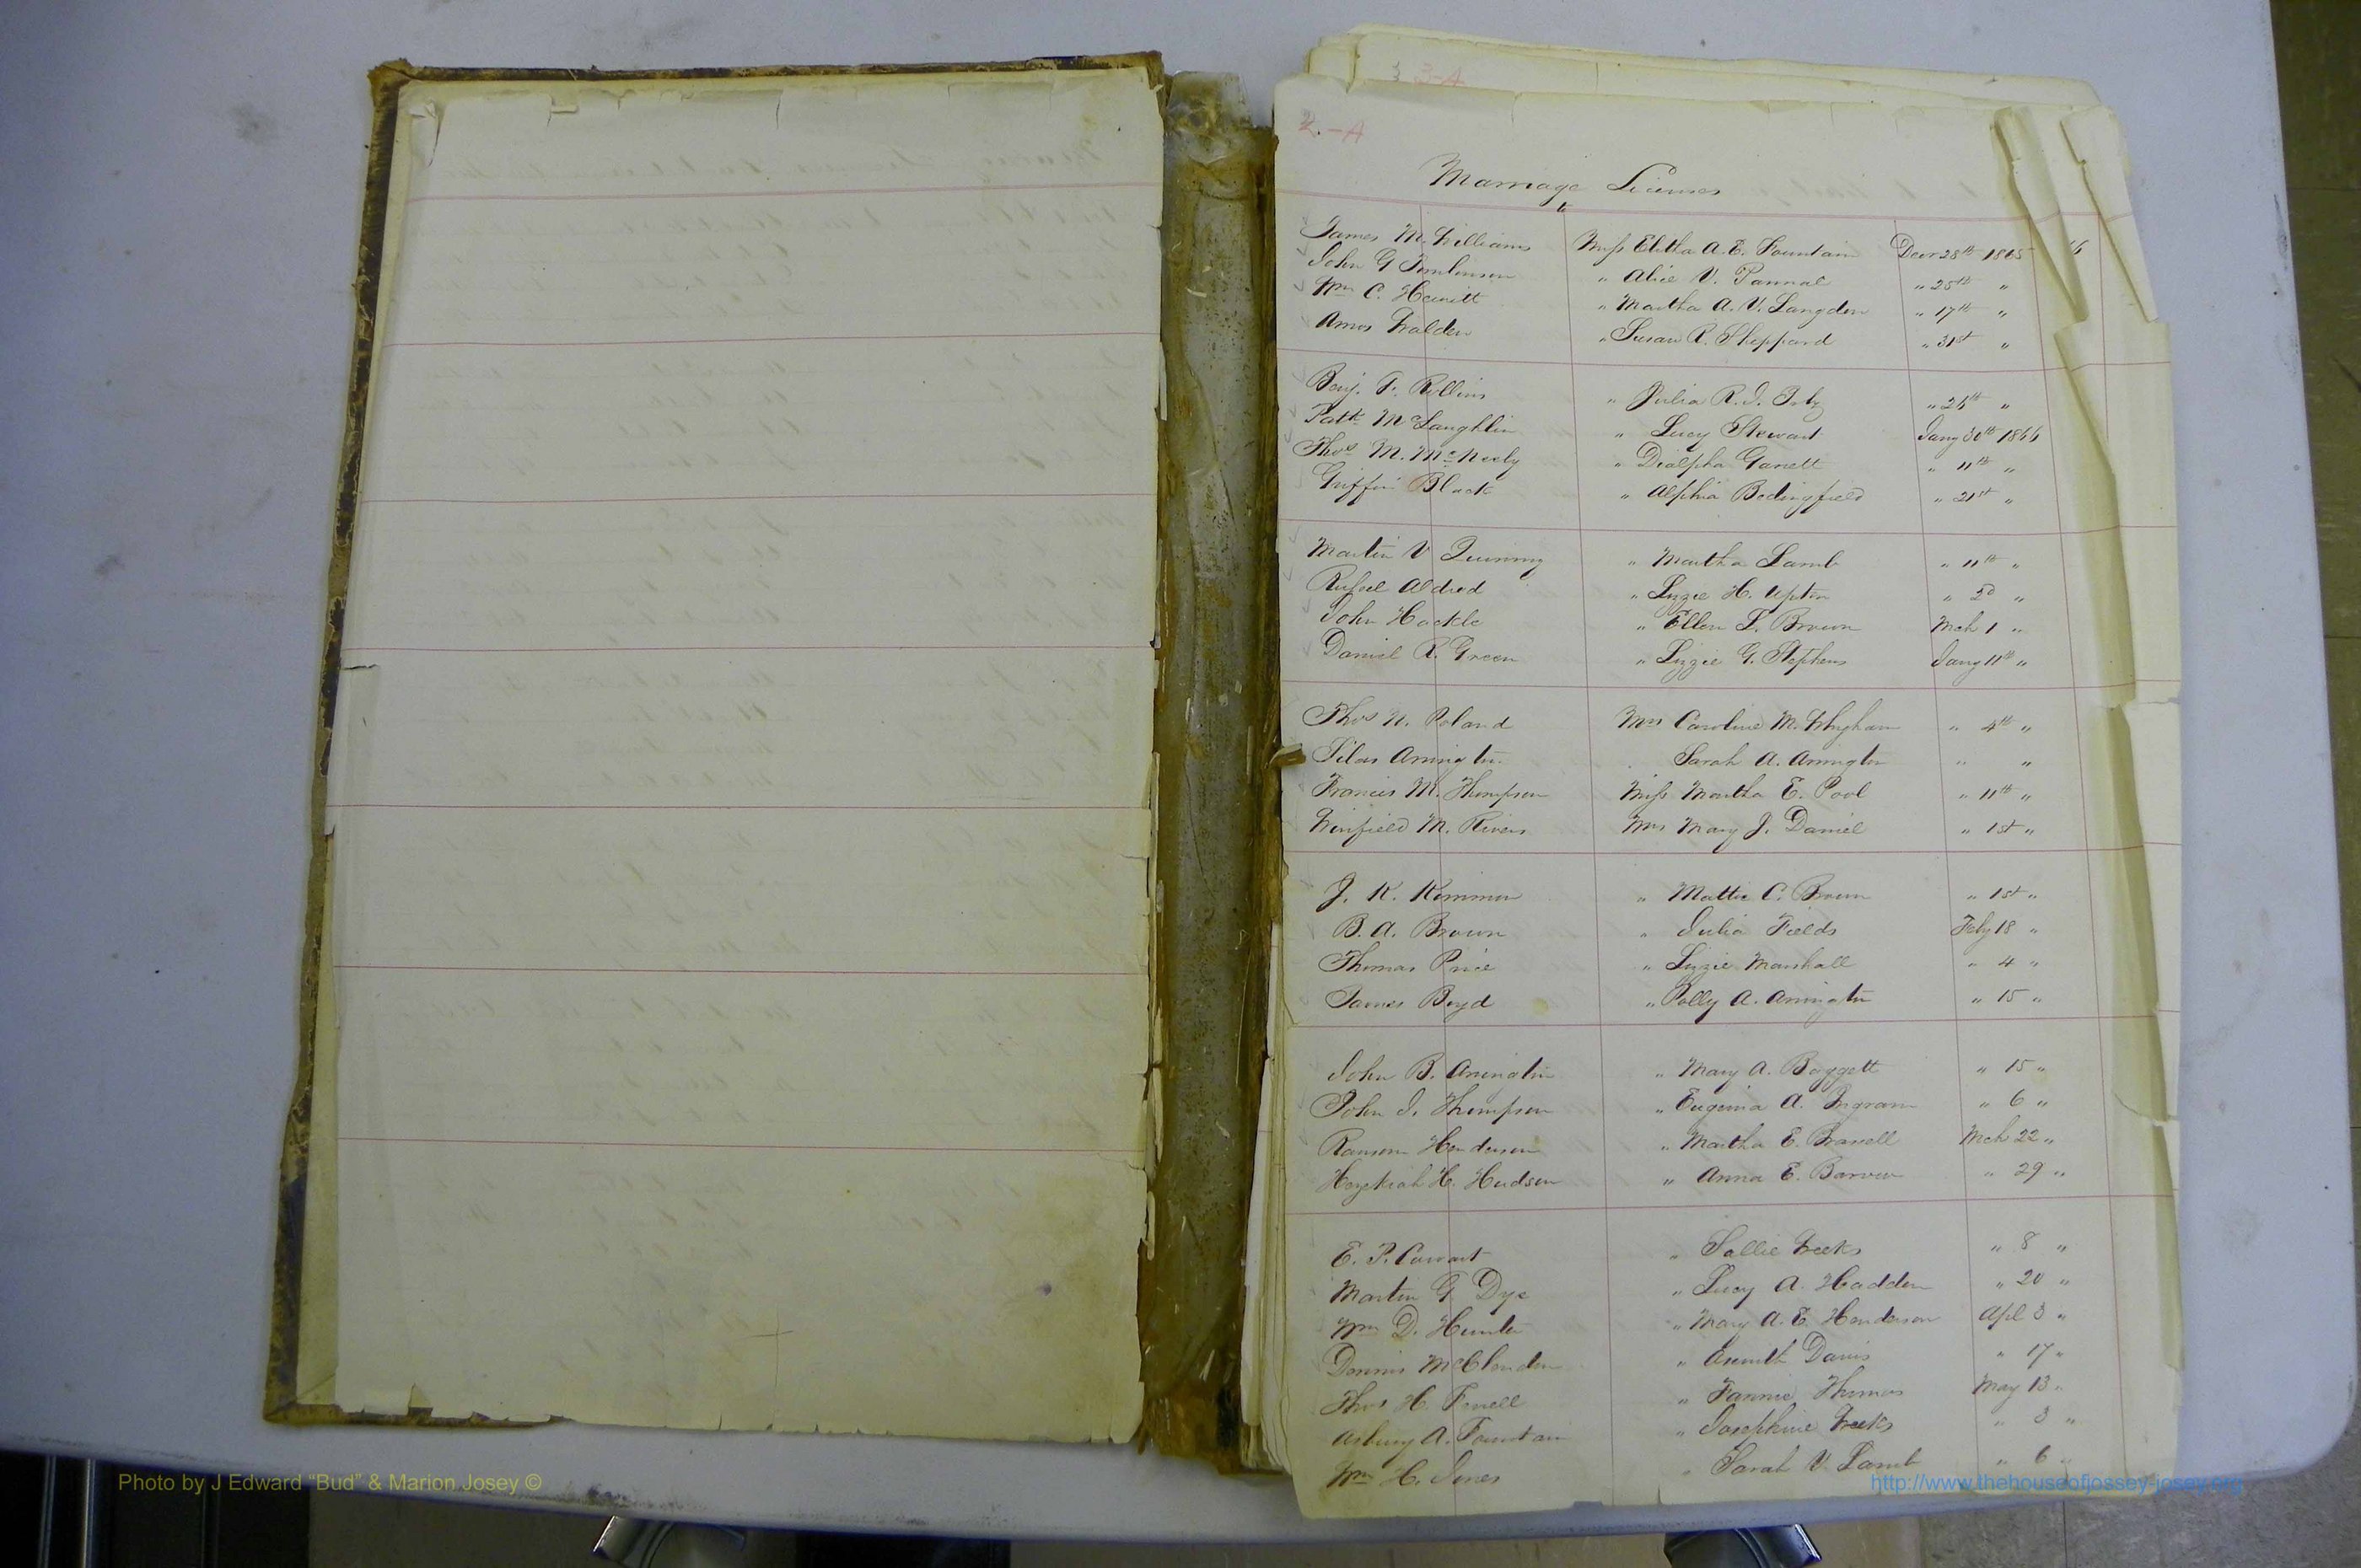 3 3-A
2.-A
Marriage Licenses
James M. Williams Miss Elitha A. E. Fountain Decr 28th 1865
John G Tomlinson " Alice V. Pannal " 25th "
Wm C. Hewitt " Martha A. V. Langdon " 17th "
Amos Walden " Susan R. Sheppard " 31st "
Benj. F. Rollins " Julia R. J. " 26th "
Patk McLaughlin " Lucy Stewart Jany 30th 1866
Thos M. McNeely " Garrett " 11th "
Griffin Black " Alphia Bedingfield " 21st "
Martin V " Martha Lamb " 11th "
Aldred " Lizzie H. Upton " 2d "
John Hackle " Ellen L. Brown Mch 1 "
Daniel R. Green " Lizzie G. Stephens Jany 11th "
Thos N. Poland Mrs Caroline M. Whigham " 4th "
Silas Arrington Sarah A. Arrington " "
Francis M. Thompson Miss Martha E. Pool " 11th "
Winfield M. Rivers Mrs Mary J. Daniel " 1st "
J. K. Kimmon " Mattie C. Brown " 1st "
B. A. Brown " Julia Fields Feby 18 "
Thomas Price " Lizzie Marshall " 4 "
James Boyd " Polly A. Arrington " 15 "
John B. Arrington " Mary A. Baggett " 15 "
John J. Thompson " Eugenia A. Ingram " 6 "
Ransom Henderson " Martha E. Mch 22 "
Hezekiah H. Hudson " Anna E. Barrow " 29 "
E. P. Cowart " Sallie Weeks " 8 "
Martin G Dye " Lucy A. Hadden " 20 "
Wm D. Hunter " Mary A. E. Henderson Apl 3 "
Dennis McClendon " Davis " 17 "
Thos H. " Fannie Thomas May 13 "
Asbury A. Fountain " Josephine Weeks " 3 "
Wm H. Jones " Sarah V. Lamb " 6 "
Photo by J Edward “Bud” & Marion Josey ©
http://www.thehouseofjossey-josey.org